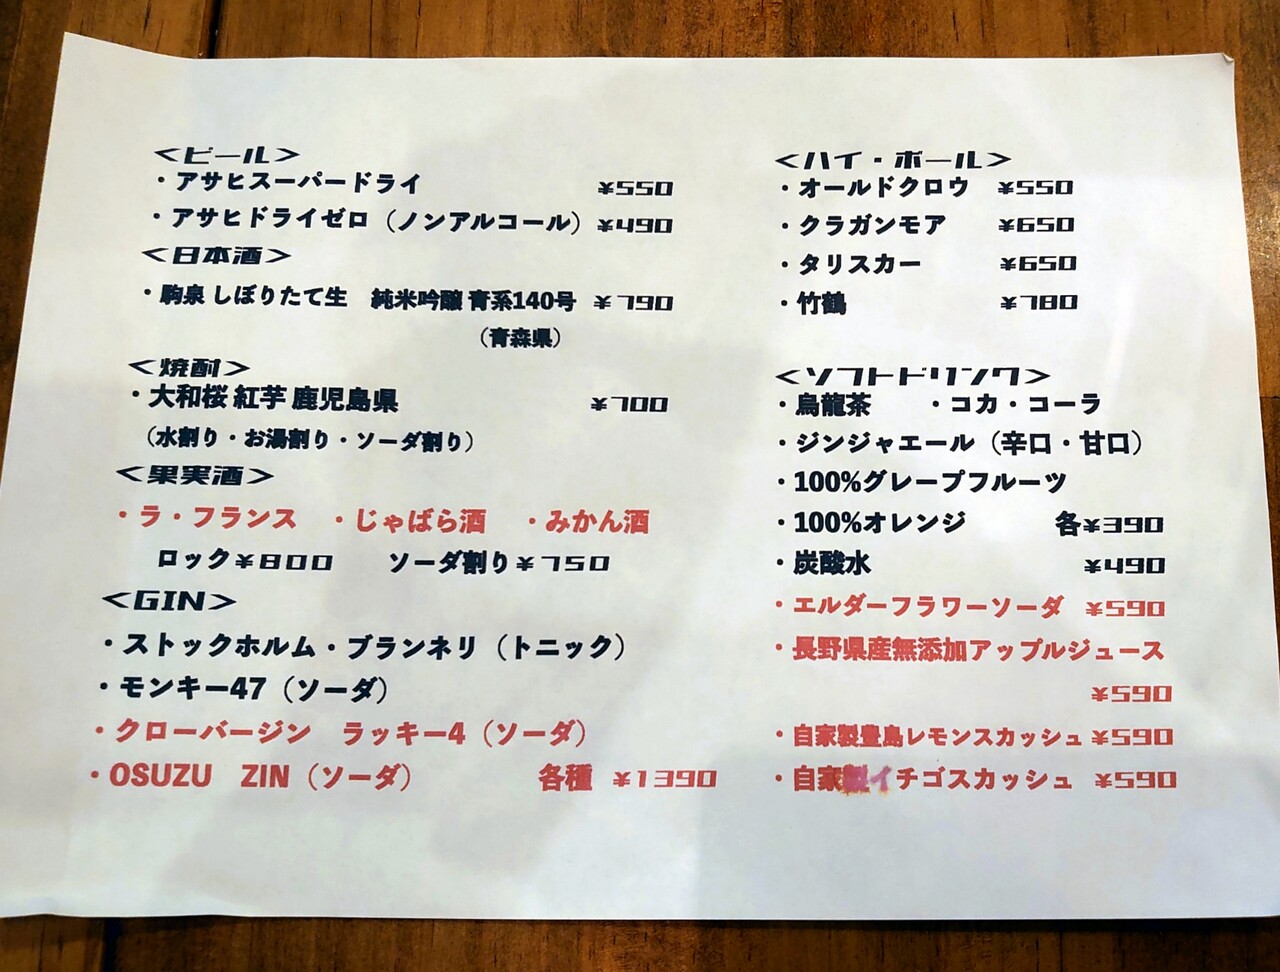 <ビール>
・アサヒスーパードライ ¥550
・アサヒドライゼロ（ノンアルコール） ¥490
<日本酒>
・駒泉 しぼりたて生 純米吟醸 青系140号 ¥790
（青森県）
<焼酎>
・大和桜 紅芋 鹿児島県 ¥700
（水割り・お湯割り・ソーダ割り）
<果実酒>
・ラ・フランス ・じゃばら酒 ・みかん酒
ロック¥800 ソーダ割り¥750
<GIN>
・ストックホルム・ブランネリ（トニック）
・モンキー47（ソーダ）
・クローバージン ラッキー4（ソーダ）
・OSUZU ZIN（ソーダ） 各種 ¥1390
<ハイ・ボール>
・オールドクロウ ¥550
・クラガンモア ¥650
・タリスカー ¥650
・竹鶴 ¥780
<ソフトドリンク>
・烏龍茶 ・コカ・コーラ
・ジンジャエール（辛口・甘口）
・100%グレープフルーツ
・100%オレンジ 各¥390
・炭酸水 ¥490
・エルダーフラワーソーダ ¥590
・長野県産無添加アップルジュース
¥590
・自家製豊島レモンスカッシュ ¥590
・自家製イチゴスカッシュ ¥590